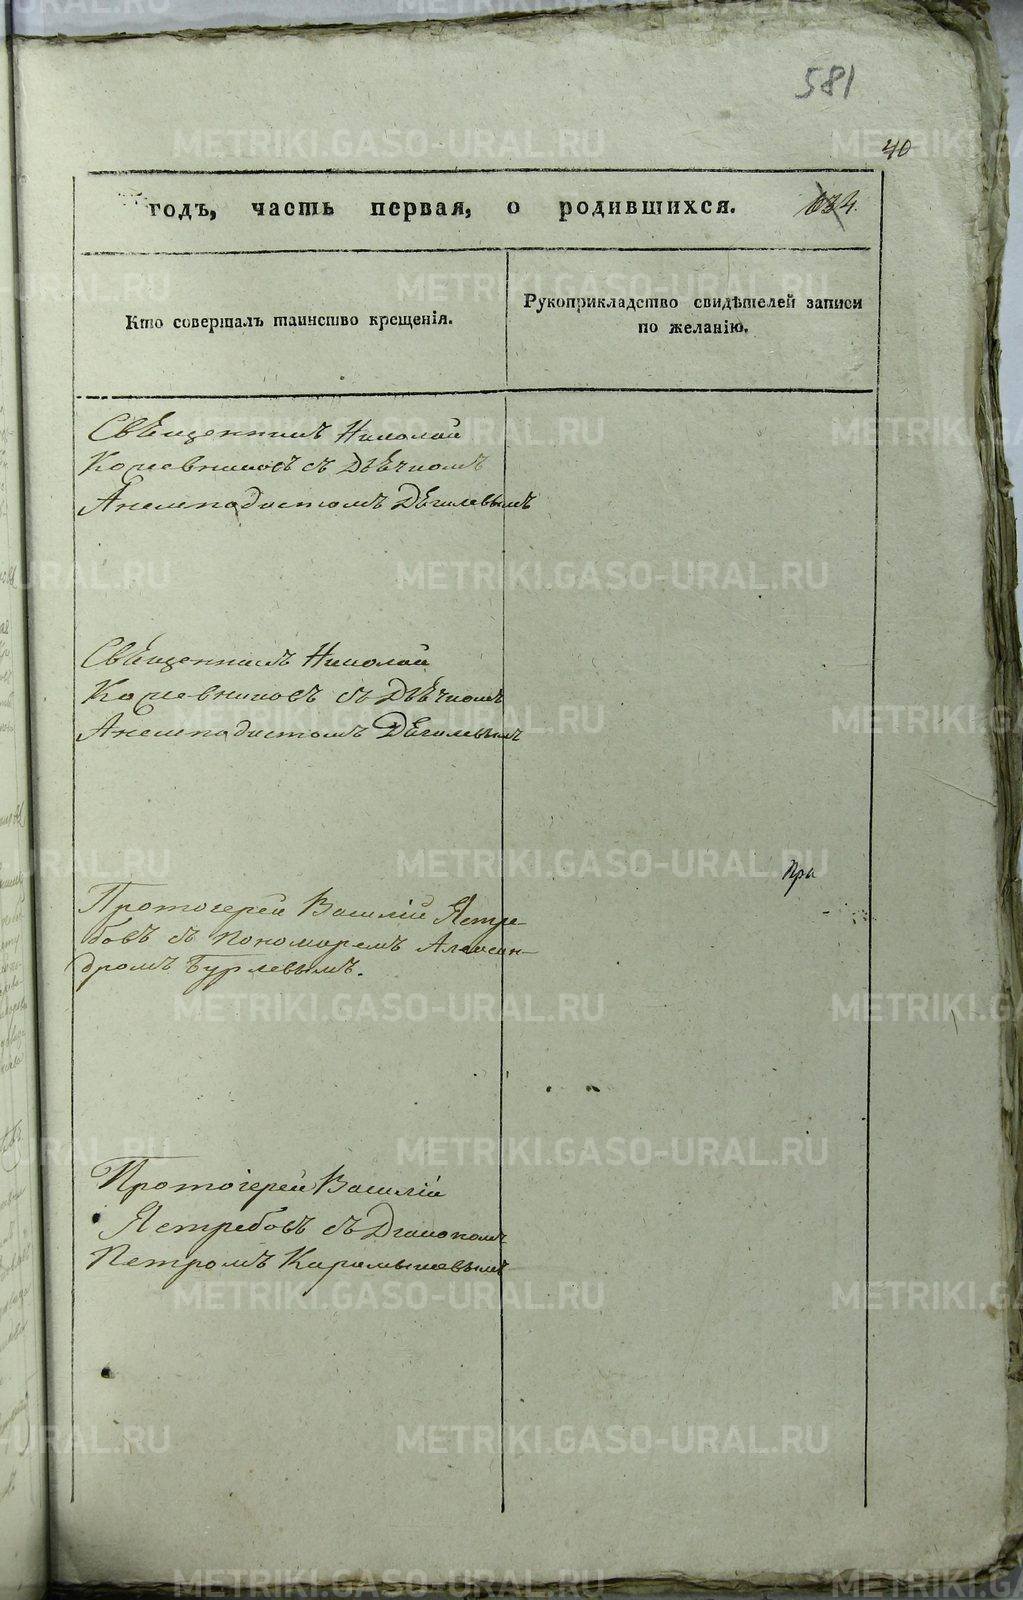 581
40
годъ, часть первая, о родившихся. 634.
Кто совершалъ таинство крещенія.
Рукоприкладство свидѣтелей записи
по желанію.
Священникъ Николай
Кожевниковъ съ Дьячкомъ
Анемподистомъ Дягилевымъ
Священникъ Николай
Кожевниковъ съ Дьячкомъ
Анемподистомъ Дягилевымъ
Протоіерей Василій Ястре-
бовъ съ пономаремъ Алексан-
дромъ Бурлевымъ.
При
Протоіерей Василій
Ястребовъ съ Діакономъ
Петромъ Карамышевымъ
METRIKI.GASO-URAL.RU